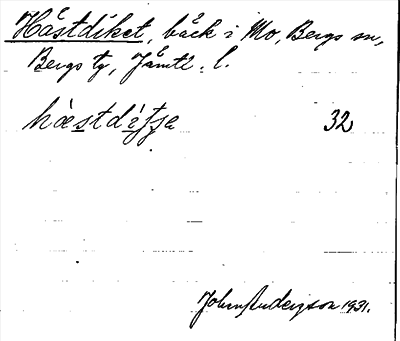 Hästdiket, bäck i Mo, Bergs sn,
Bergs tg, Jämtl. l.
hæ̀stdı̀tja 32
John Andersson 1931.